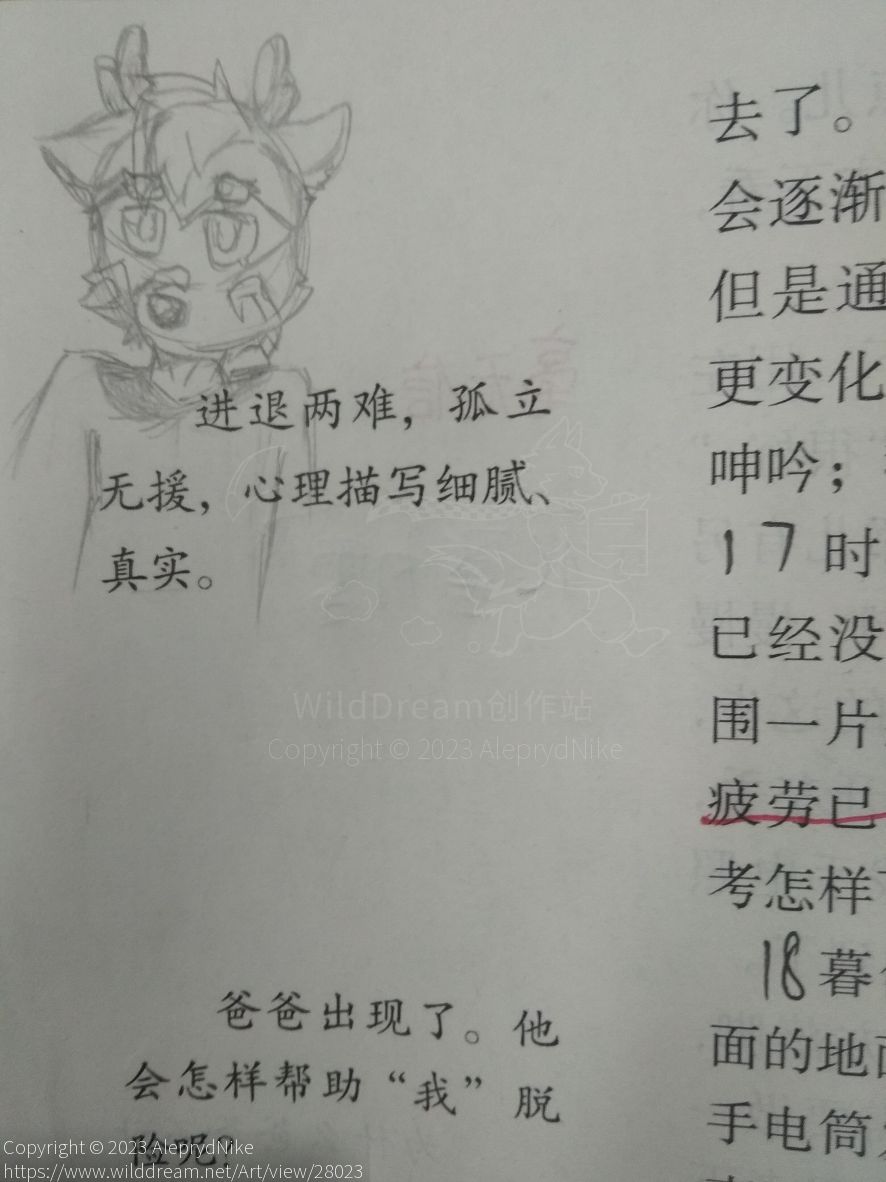 进退两难，孤立
无援，心理描写细腻、
真实。
爸爸出现了。他
会怎样帮助“我”脱
险呢？
去了。
会逐渐
但是通
更变化
呻吟；
17时
已经没
围一片
疲劳已
考怎样
18暮
面的地面
手电筒
WildDream创作站
Copyright © 2023 AleprydNike
Copyright © 2023 AleprydNike
https://www.wilddream.net/Art/view/28023